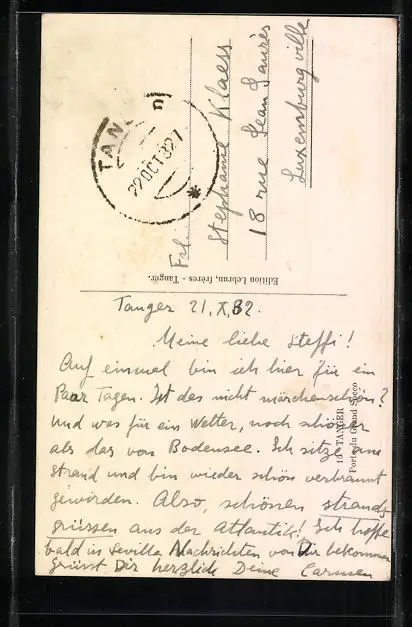 Tanger 21. X. 32.
Meine liebe Steffi!
Auf einmal bin ich hier für ein
Paar Tagen. Ist das nicht märchenschön?
Und was für ein Wetter, noch schöner
als das von Bodensee. Ich sitze am
Strand und bin wieder schön verbrannt
geworden. Also, schönen Strands
grüssen aus der Atlantik! Ich hoffe
bald in Sevilla Nachrichten von Dir bekommen
grüsst Dir herzlich Deine Carmen
Frl.
Stephanie Klaess
18 rue Jean Jaurès
Luxemburg ville
TAN
22 OCT 32
Edition Lebrun, frères - Tanger.
TANGER
Porte du Grand Socco